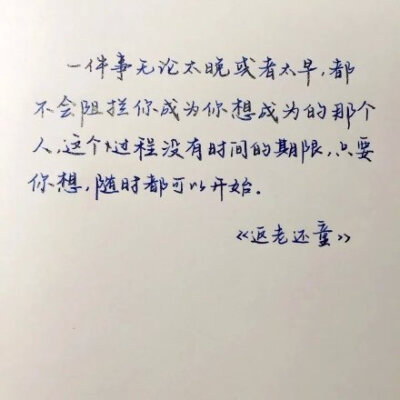 一件事无论太晚或者太早，都
不会阻拦你成为你想成为的那个
人，这个过程没有时间的期限，只要
你想，随时都可以开始．
《返老还童》